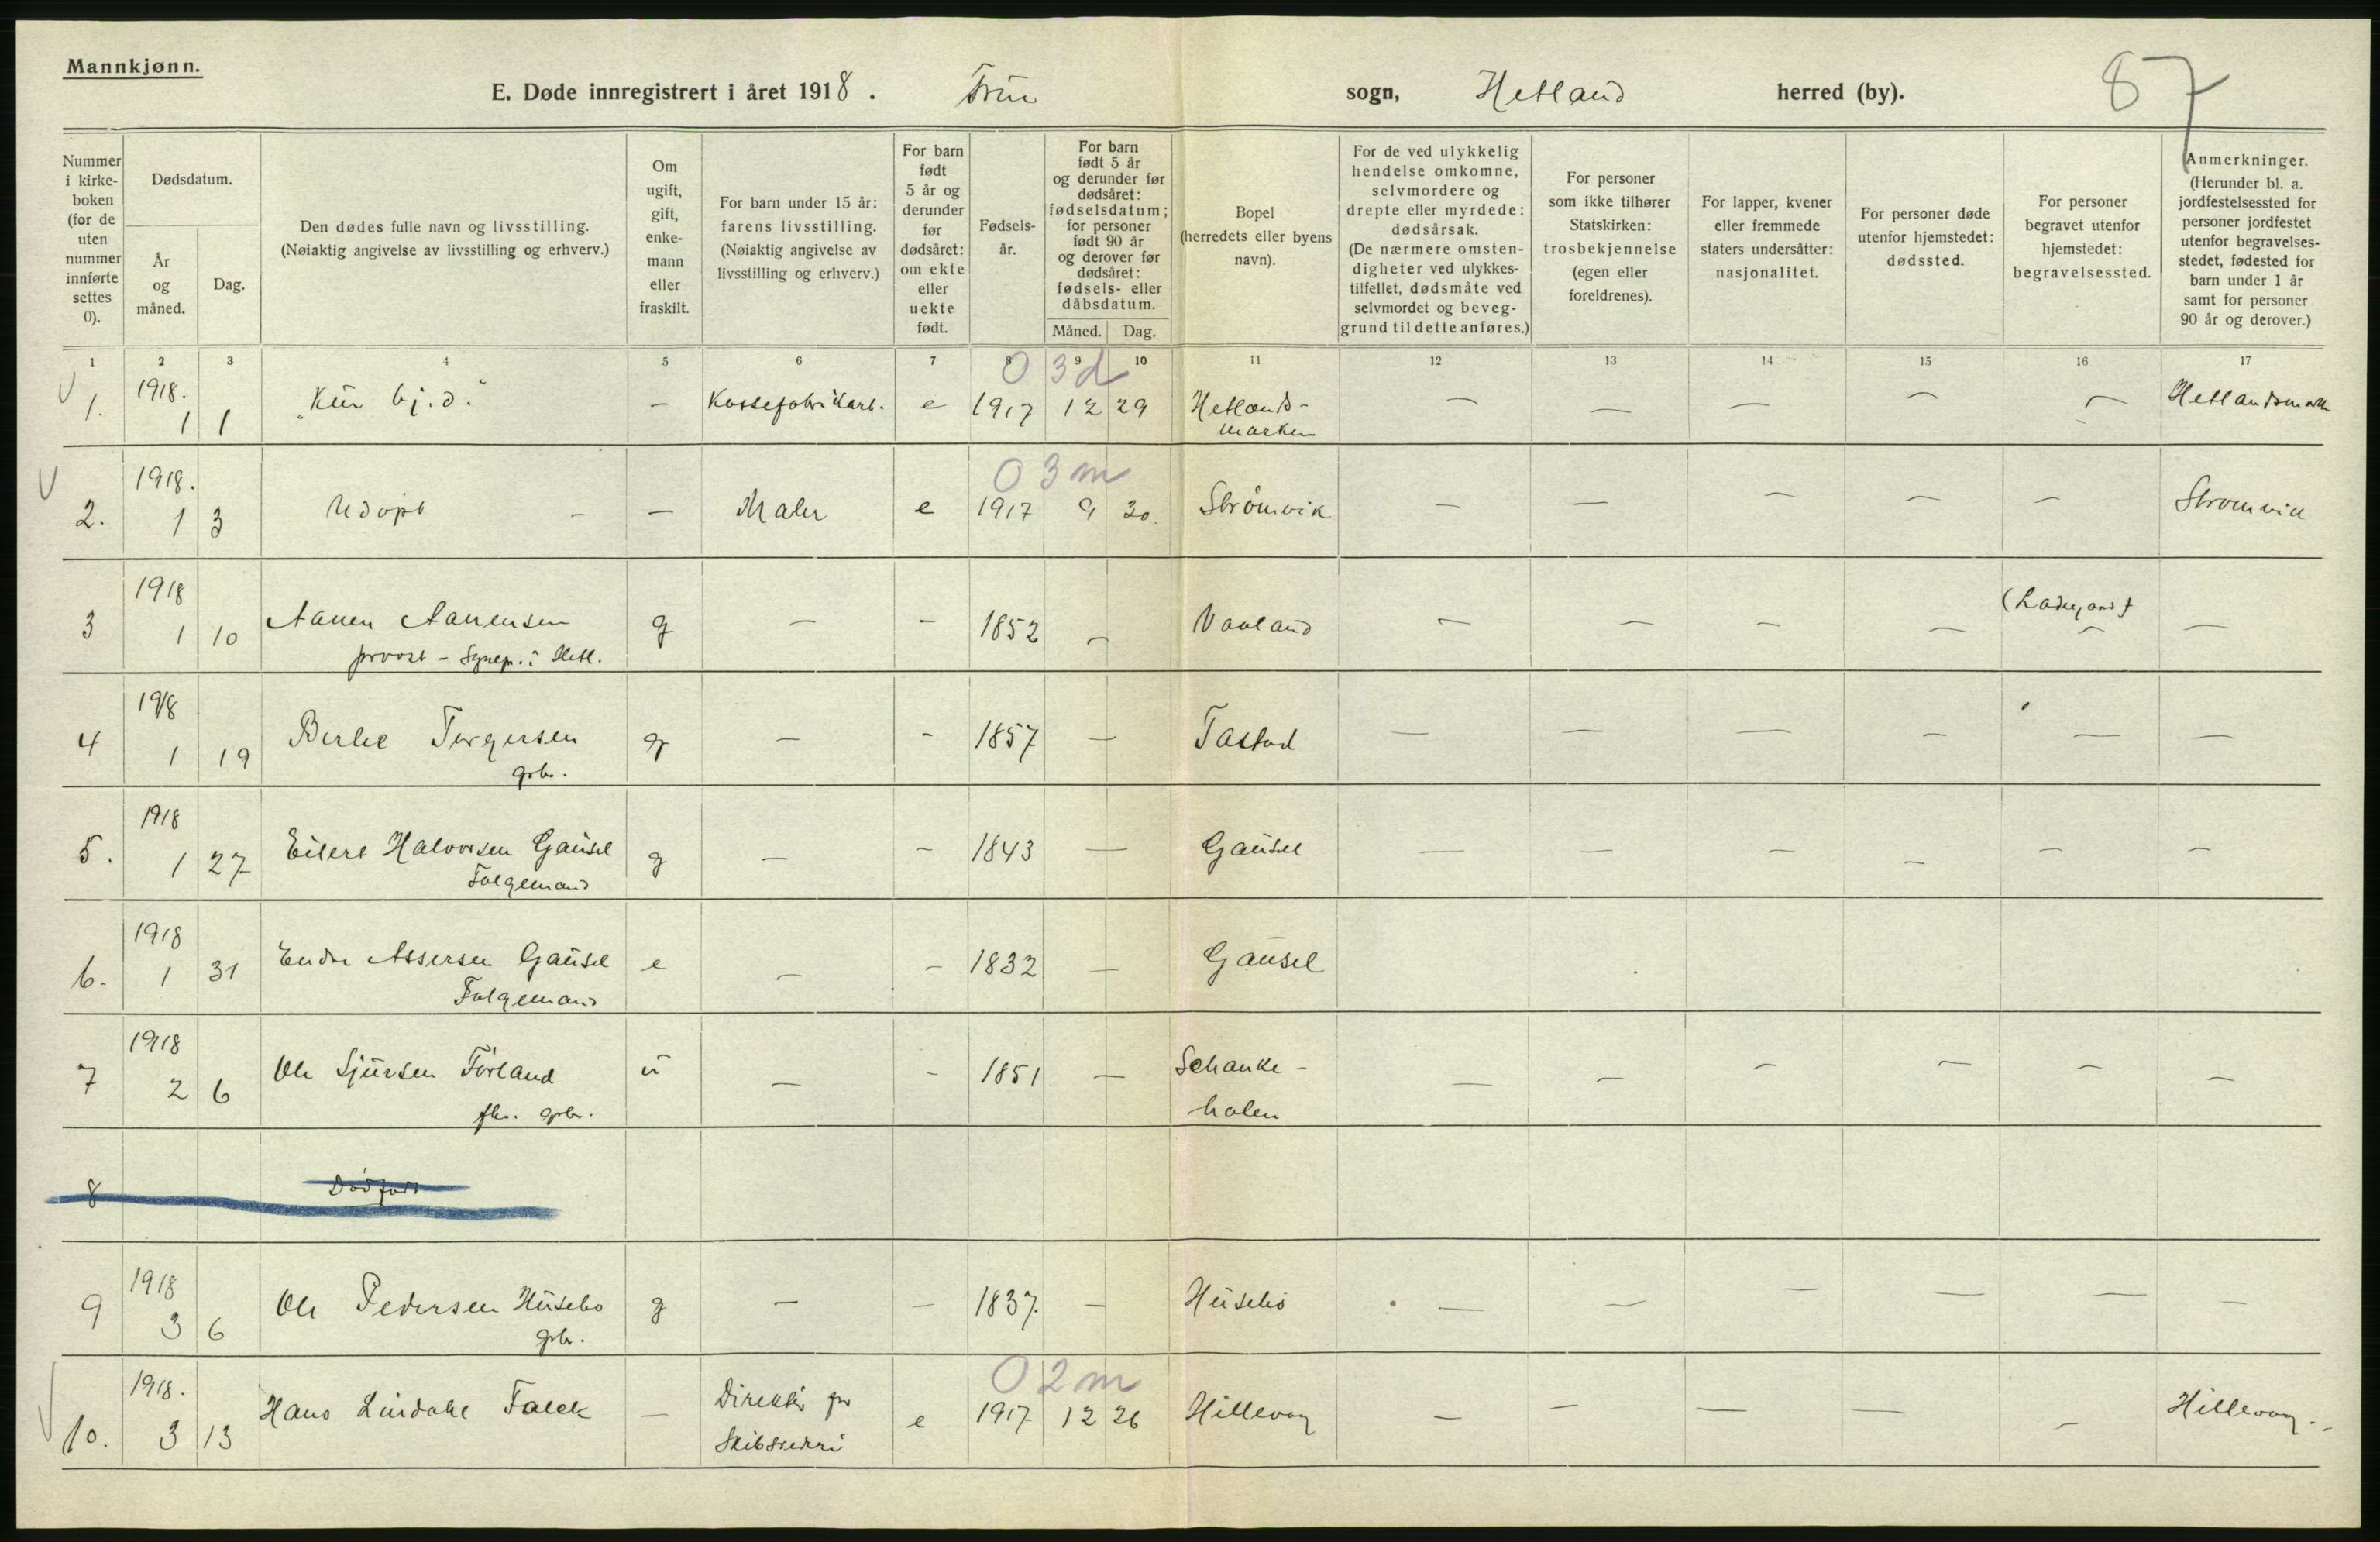 Mannkjønn.
E. Døde innregistrert i året 1918. Frue sogn, Hetland herred (by). 87
Nummer i kirkeboken (for de uten nummer innførte settes 0).
Dødsdatum.
År og måned.
Dag.
Den dødes fulle navn og livsstilling. (Nøiaktig angivelse av livsstilling og erhverv.)
Om ugift, gift, enkemann eller fraskilt.
For barn under 15 år: farens livsstilling. (Nøiaktig angivelse av livsstilling og erhverv.)
For barn født 5 år og derunder før dødsåret: om ekte eller uekte født.
Fødselsår.
For barn født 5 år og derunder før dødsåret: fødselsdatum; for personer født 90 år og derover før dødsåret: fødsels- eller dåbsdatum.
Måned. Dag.
Bopel (herredets eller byens navn).
For de ved ulykkelig hendelse omkomne, selvmordere og drepte eller myrdede: dødsårsak. (De nærmere omstendigheter ved ulykkestilfellet, dødsmåte ved selvmordet og beveggrund til dette anføres.)
For personer som ikke tilhører Statskirken: trosbekjennelse (egen eller foreldrenes).
For lapper, kvener eller fremmede staters undersåtter: nasjonalitet.
For personer døde utenfor hjemstedet: dødssted.
For personer begravet utenfor hjemstedet: begravelsessted.
Anmerkninger. (Herunder bl. a. jordfestelsessted for personer jordfestet utenfor begravelsesstedet, fødested for barn under 1 år samt for personer 90 år og derover.)
1 2 3 4 5 6 7 8 9 10 11 12 13 14 15 16 17
0 3d
1. 1918. 1 1 "Kun hj. d." — e 1917 12 29 Hetlands- — — — — —
marken
0 3m
2. 1918. 1 3 Udøpt — — Maler e 1917 9 30. Strømvik — — — — — Strømvik
3 1918 1 10 Aanen Aanensen g — — 1852 — Vaaland — — — — (Ladegaard) — —
provst - Sgnepr. i Hetl.
4 1918 1 19 Berlie Torgersen g — — 1857 — Tastad — — — — — —
gbr.
5. 1918 1 27 Eilert Halvorsen Gausel g — — 1843 — Gausel — — — — — —
Folgemand
6. 1918 1 31 Endre Assersen Gausel e — — 1832 — Gausel
Folgemand
7 1918 2 6 Ole Sjursen Forland u — — 1851 — Schanke- — — — — — —
holen
fhv. gbr.
8 Dødfødt
9 1918 3 6 Ole Pedersen Husebø g — — 1837. — Husebø — — — — — —
gbr.
0 2m
10. 1918. 3 13 Hans Lindahl Falck — Direktør for e 1917 12 26 Hillevag — — — — — Hillevag.
Skibsrederi